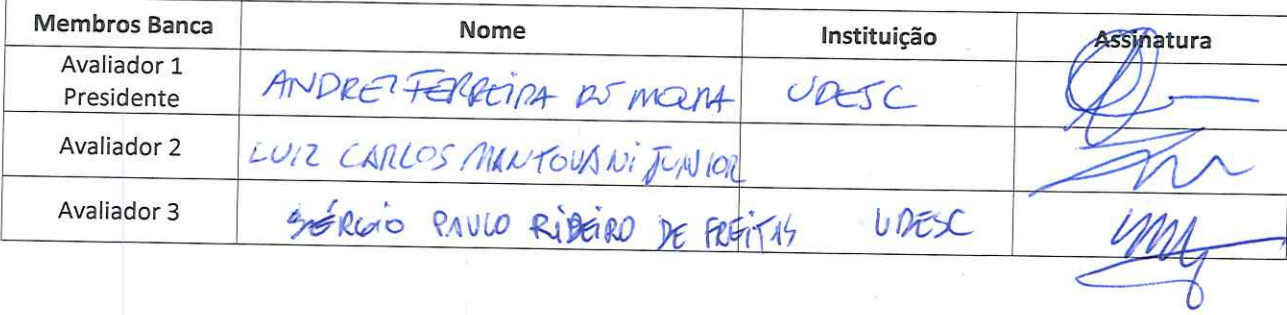 Membros Banca Nome Instituição Assinatura
Avaliador 1
Presidente ANDREI FERREIRA DE MOURA UDESC
Avaliador 2 LUIZ CARLOS MANTOVANI JUNIOR
Avaliador 3 SÉRGIO PAULO RIBEIRO DE FREITAS UDESC